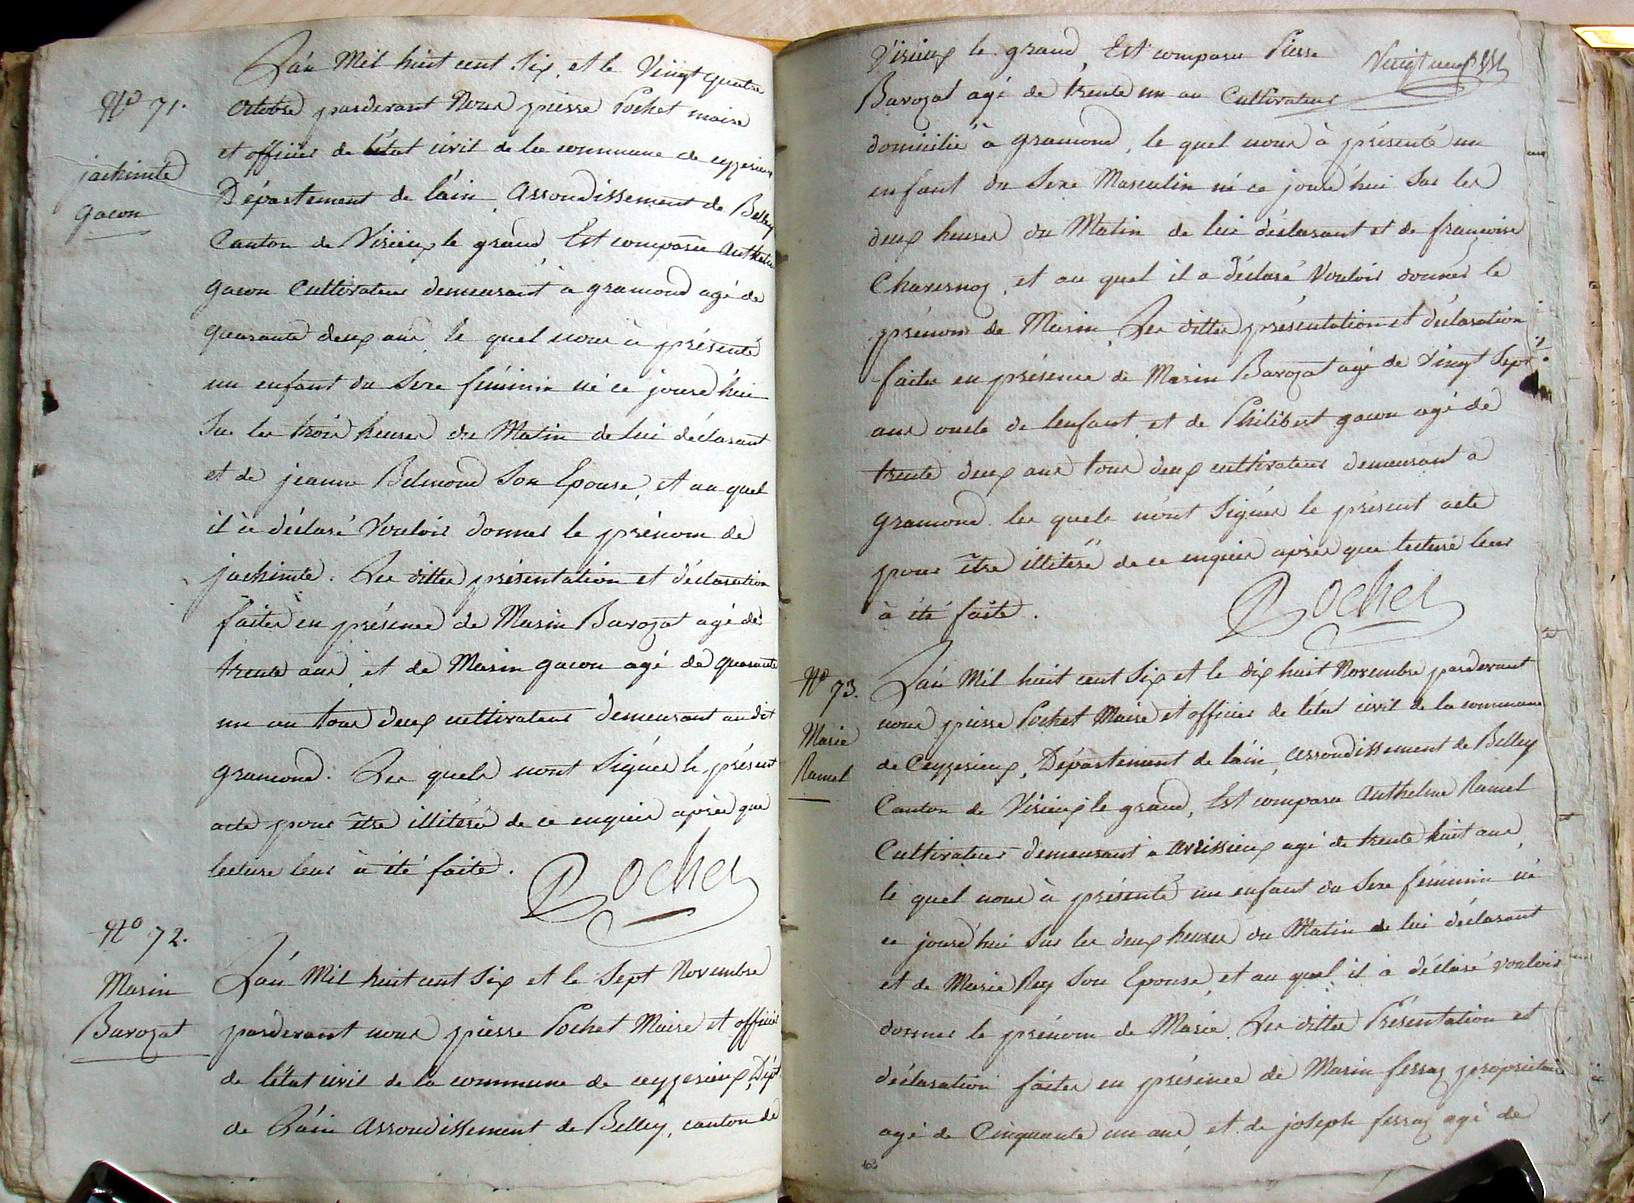 N° 71.
jachinte
gacon
L'an Mil huit cent Six, et le Vingt quatre
Octobre pardevant Nous pierre Pochet maire
et officier de létat civil de la commune de ceyzerieu
Département de l'ain, Arrondissement de Belley
Canton de Virieu le grand Est comparu Anthelme
gacon Cultivateur demeurant à gramond agé de
quarante deux ans, le quel nous à présenté
un enfant du Sexe féminin né ce jourd'hui
Sur les trois heures du Matin de lui déclarant
et de jeanne Belmond Son Epouse, et au quel
il à déclaré Vouloir donner le prénom de
jachinte. Les dittes présentation et déclaration
faites en présence de Marin Barozat agé de
trente ans, et de Marin gacon agé de quarante
un an tous deux cultivateurs demeurant au dit
gramond: Les quels nont Signés le présent
acte pour être illitéré de ce enquis après que
lecture leur à été faite.
Pochet
N° 72.
Marin
Barozat
L'an Mil huit cent Six et le Sept Novembre
pardevant nous pierre Pochet Maire et officier
de létat civil de la commune de ceyzerieux, Dépt
de L'ain Arrondissement de Belley, canton de
Virieux le grand, Est comparu Pierre
Vingt neuf
Barozat agé de trente un an Cultivateur
domicilié à gramond, le quel nous à présenté un
enfant du Sexe Masculin né ce jourd'hui Sur les
deux heures du Matin de lui déclarant et de françoise
Charesnoz, et au quel il a déclaré Vouloir donner le
prénom de Marin. Les dittes présentation et déclaration
faites en présence de Marin Barozat agé de Vingt Sept
ans oncle de lenfant, et de Philibert gacon agé de
trente deux ans tous deux cultivateurs demeurant à
gramond les quels n'ont Signés le présent acte
pour être illitéré de ce enquis après que lecture leur
à été faite.
Pochet
N° 73.
Marie
Ramel
L'an Mil huit cent Six et le dix huit Novembre pardevant
nous pierre Pochet Maire et officier de l'état civil de la commune
de Ceyzerieux, Département de l'ain, arrondissement de Belley
Canton de Virieux le grand, Est comparu Anthelme Ramel
Cultivateur demeurant à avrissieux agé de trente huit ans,
le quel nous à présenté un enfant du Sexe féminin né
ce jourd'hui Sur les deux heures du Matin de lui déclarant
et de Marie Rey Son Epouse, et au quel il à déclaré vouloir
donner le prénom de Marie. Les dittes Présentation et
déclaration faites en présence de Marin ferraz propriétaire
agé de Cinquante un ans, et de joseph ferraz agé de
103